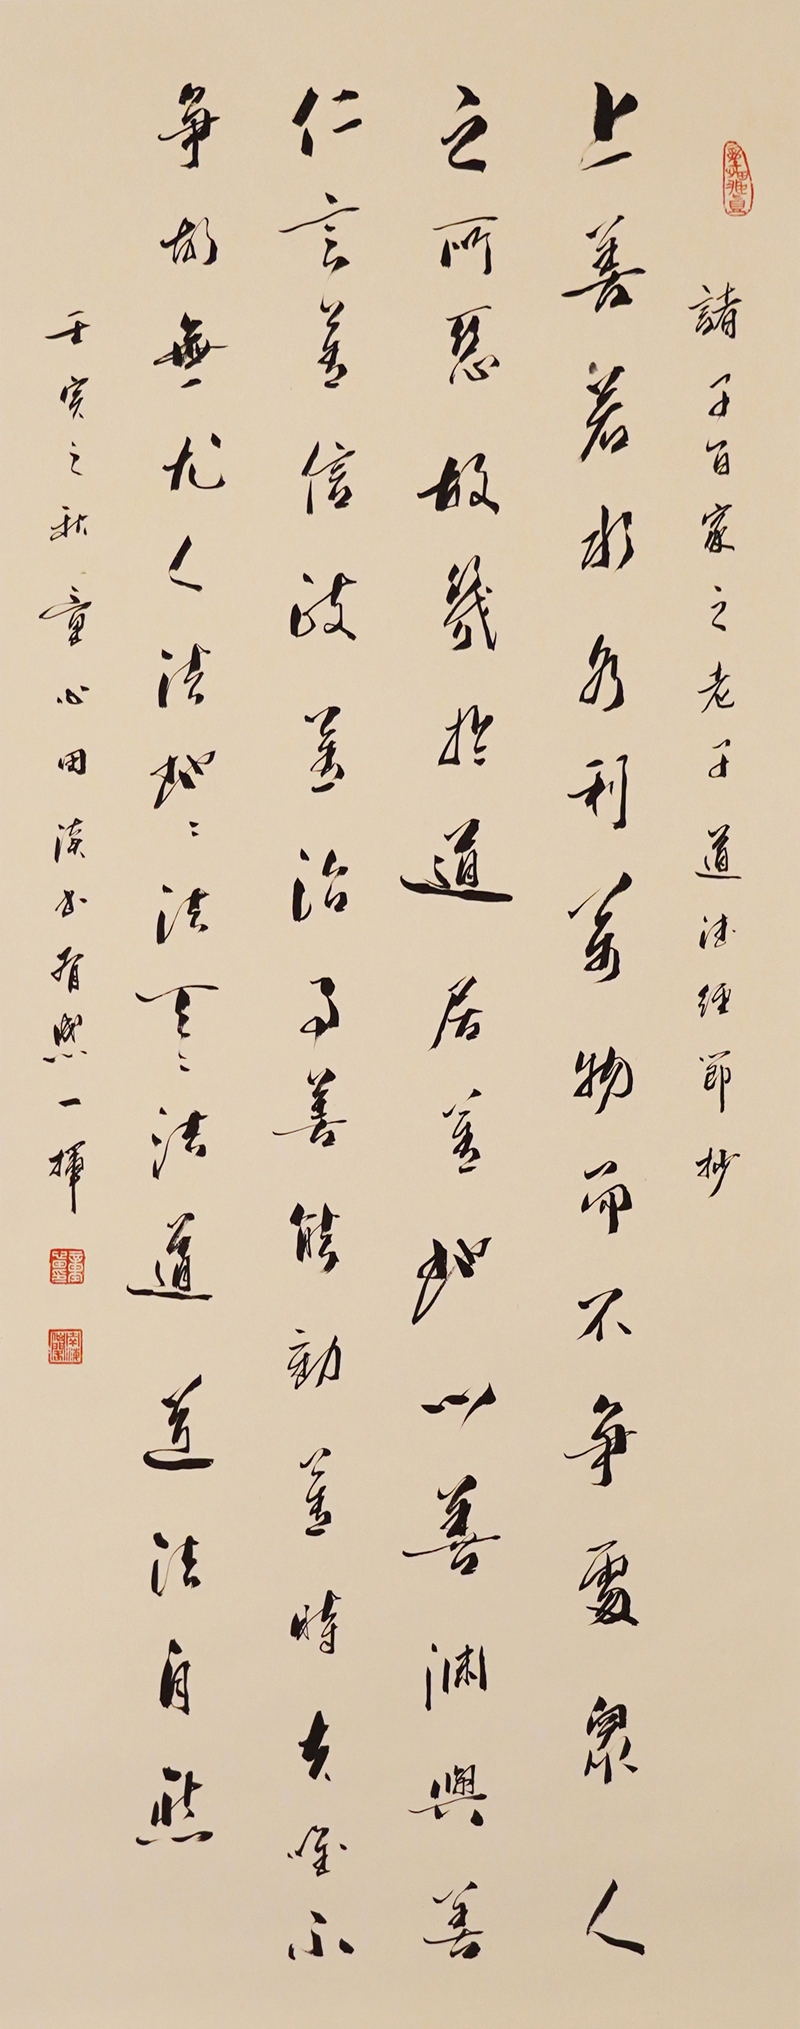 諸子百家之老子道德經節抄
上善若水水利萬物而不爭處眾人
之所惡故幾於道居善地心善淵與善
仁言善信政善治事善能動善時夫唯不
爭故無尤人法地〻法天〻法道道法自然
壬寅之秋童心田書有一揮